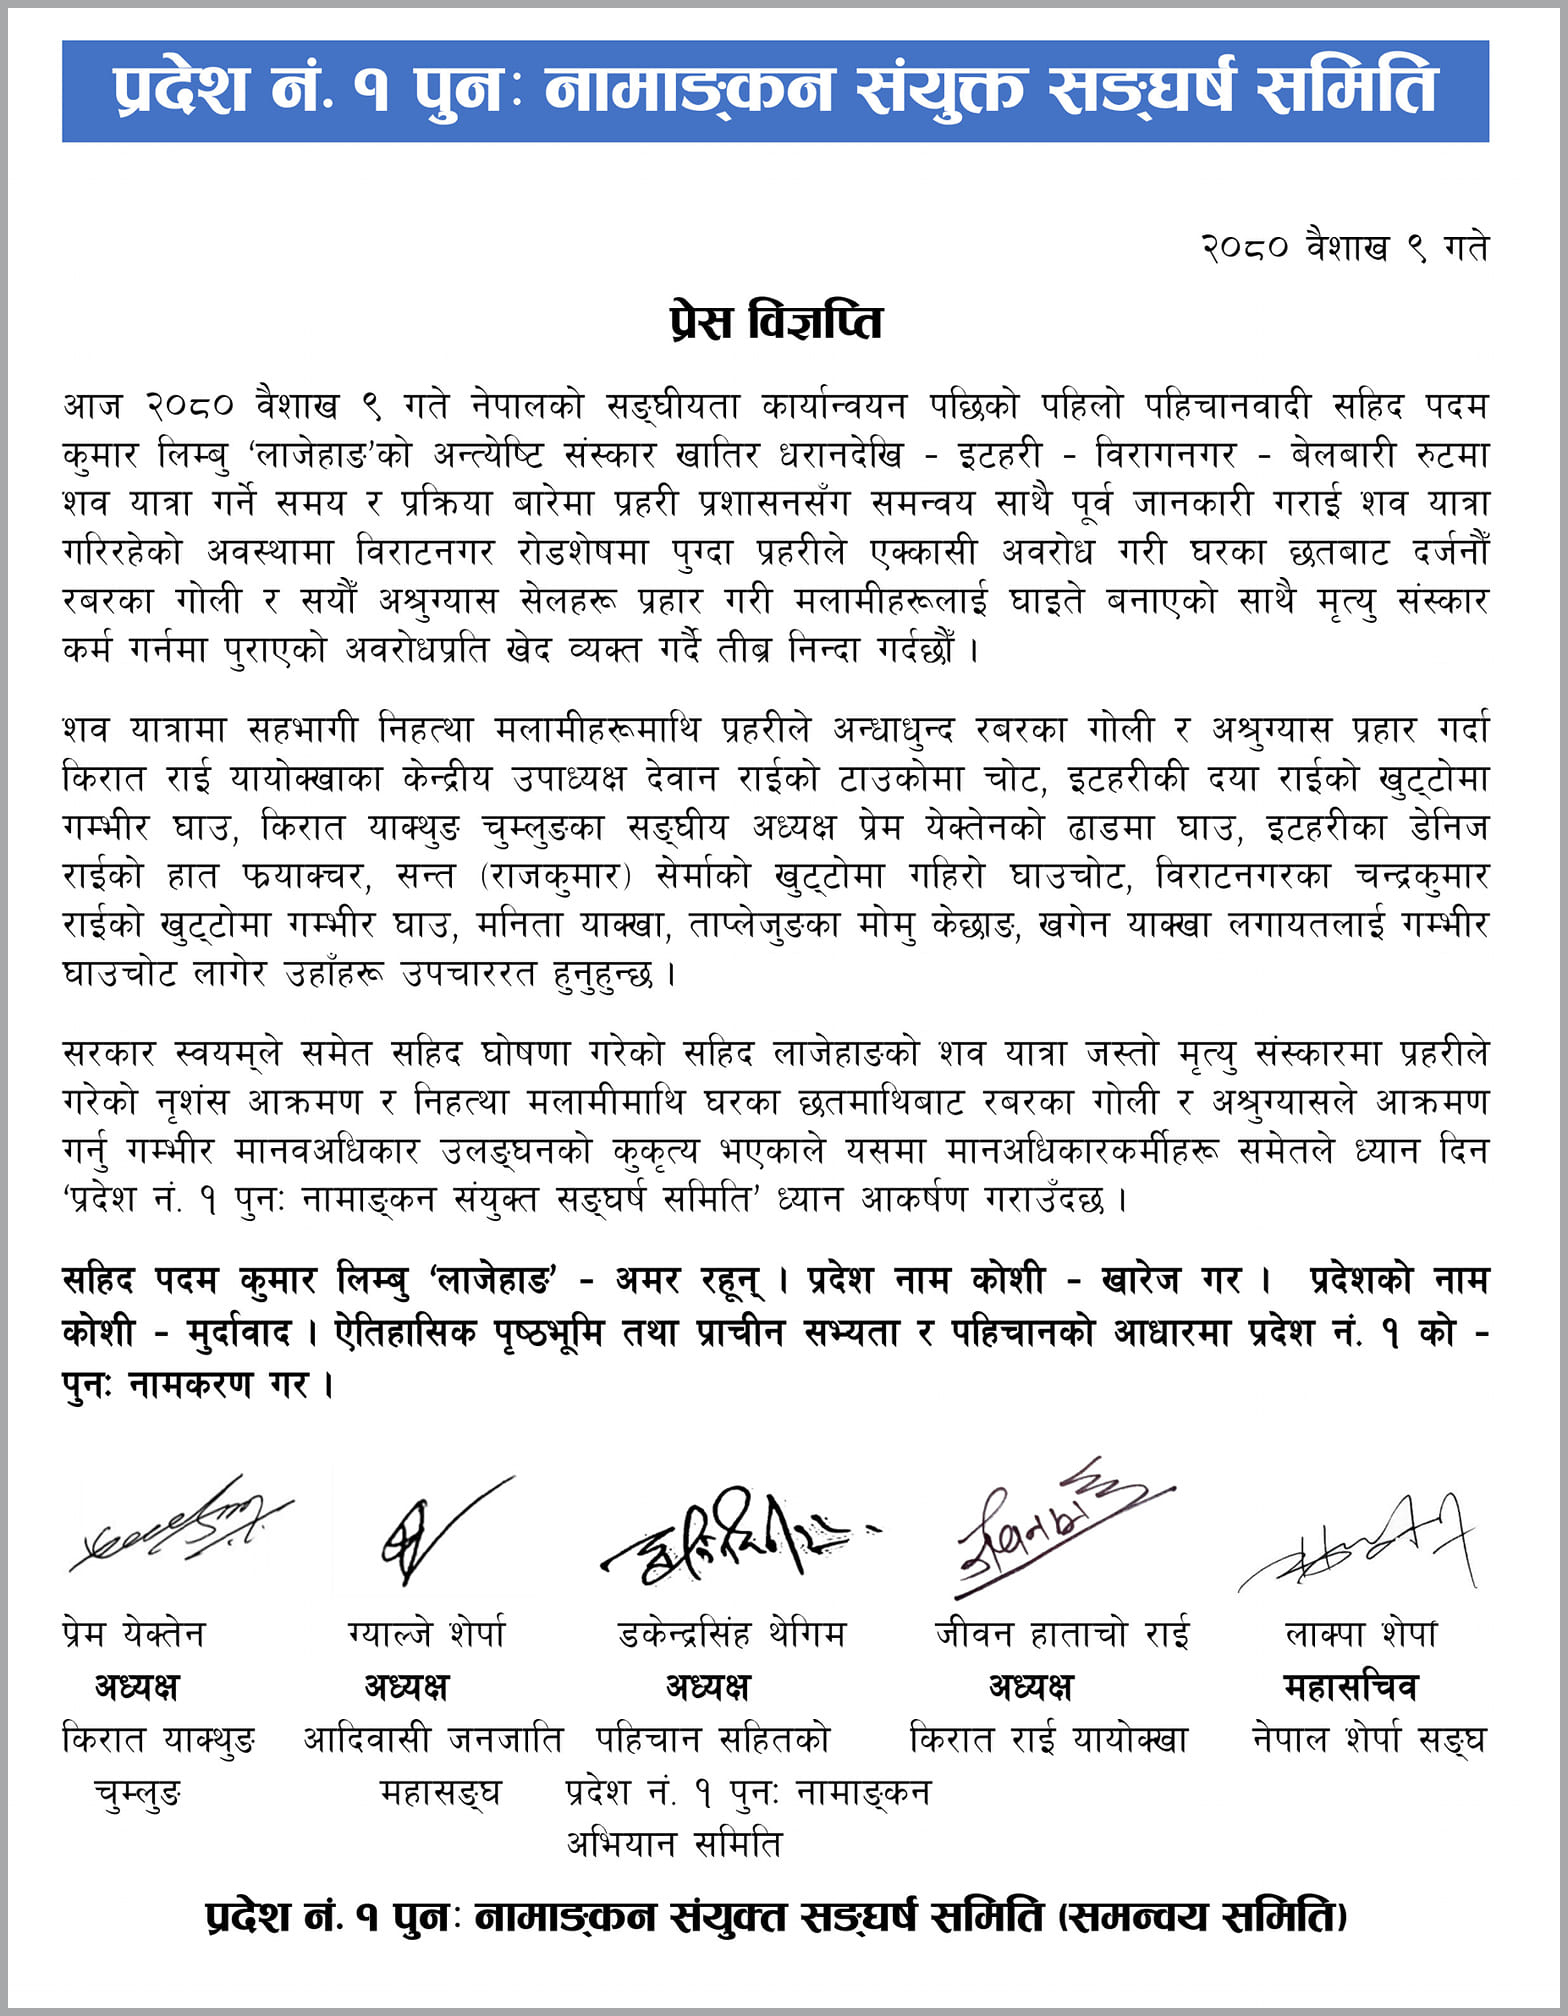 प्रदेश नं. १ पुनः नामाङ्कन संयुक्त सङ्घर्ष समिति
२०८० वैशाख ९ गते
प्रेस विज्ञप्ति
आज २०८० वैशाख ९ गते नेपालको सङ्घीयता कार्यान्वयन पछिको पहिलो पहिचानवादी सहिद पदम
कुमार लिम्बु ‘लाजेहाङ’को अन्त्येष्टि संस्कार खातिर धरानदेखि - इटहरी - विरागनगर - बेलबारी रुटमा
शव यात्रा गर्ने समय र प्रक्रिया बारेमा प्रहरी प्रशासनसँग समन्वय साथै पूर्व जानकारी गराई शव यात्रा
गरिरहेको अवस्थामा विराटनगर रोडशेषमा पुग्दा प्रहरीले एक्कासी अवरोध गरी घरका छतबाट दर्जनौँ
रबरका गोली र सयौँ अश्रुग्यास सेलहरू प्रहार गरी मलामीहरूलाई घाइते बनाएको साथै मृत्यु संस्कार
कर्म गर्नमा पुराएको अवरोधप्रति खेद व्यक्त गर्दै तीब्र निन्दा गर्दछौँ ।
शव यात्रामा सहभागी निहत्था मलामीहरूमाथि प्रहरीले अन्धाधुन्द रबरका गोली र अश्रुग्यास प्रहार गर्दा
किरात राई यायोक्खाका केन्द्रीय उपाध्यक्ष देवान राईको टाउकोमा चोट, इटहरीकी दया राईको खुट्टोमा
गम्भीर घाउ, किरात याक्थुङ चुम्लुङका सङ्घीय अध्यक्ष प्रेम येक्तेनको ढाडमा घाउ, इटहरीका डेनिज
राईको हात फ्रयाक्चर, सन्त (राजकुमार) सेर्माको खुट्टोमा गहिरो घाउचोट, विराटनगरका चन्द्रकुमार
राईको खुट्टोमा गम्भीर घाउ, मनिता याक्खा, ताप्लेजुङका मोमु केछाङ, खगेन याक्खा लगायतलाई गम्भीर
घाउचोट लागेर उहाँहरू उपचाररत हुनुहुन्छ ।
सरकार स्वयम्ले समेत सहिद घोषणा गरेको सहिद लाजेहाङको शव यात्रा जस्तो मृत्यु संस्कारमा प्रहरीले
गरेको नृशंस आक्रमण र निहत्था मलामीमाथि घरका छतमाथिबाट रबरका गोली र अश्रुग्यासले आक्रमण
गर्नु गम्भीर मानवअधिकार उलङ्घनको कुकृत्य भएकाले यसमा मानअधिकारकर्मीहरू समेतले ध्यान दिन
‘प्रदेश नं. १ पुनः नामाङ्कन संयुक्त सङ्घर्ष समिति’ ध्यान आकर्षण गराउँदछ ।
सहिद पदम कुमार लिम्बु ‘लाजेहाङ’ - अमर रहून् । प्रदेश नाम कोशी - खारेज गर । प्रदेशको नाम
कोशी - मुर्दावाद । ऐतिहासिक पृष्ठभूमि तथा प्राचीन सभ्यता र पहिचानको आधारमा प्रदेश नं. १ को -
पुनः नामकरण गर ।
प्रेम येक्तेन ग्याल्जे शेर्पा डकेन्द्रसिंह थेगिम जीवन हाताचो राई लाक्पा शेर्पा
अध्यक्ष अध्यक्ष अध्यक्ष अध्यक्ष महासचिव
किरात याक्थुङ आदिवासी जनजाति पहिचान सहितको किरात राई यायोक्खा नेपाल शेर्पा सङ्घ
चुम्लुङ महासङ्घ प्रदेश नं. १ पुनः नामाङ्कन
अभियान समिति
प्रदेश नं. १ पुनः नामाङ्कन संयुक्त सङ्घर्ष समिति (समन्वय समिति)